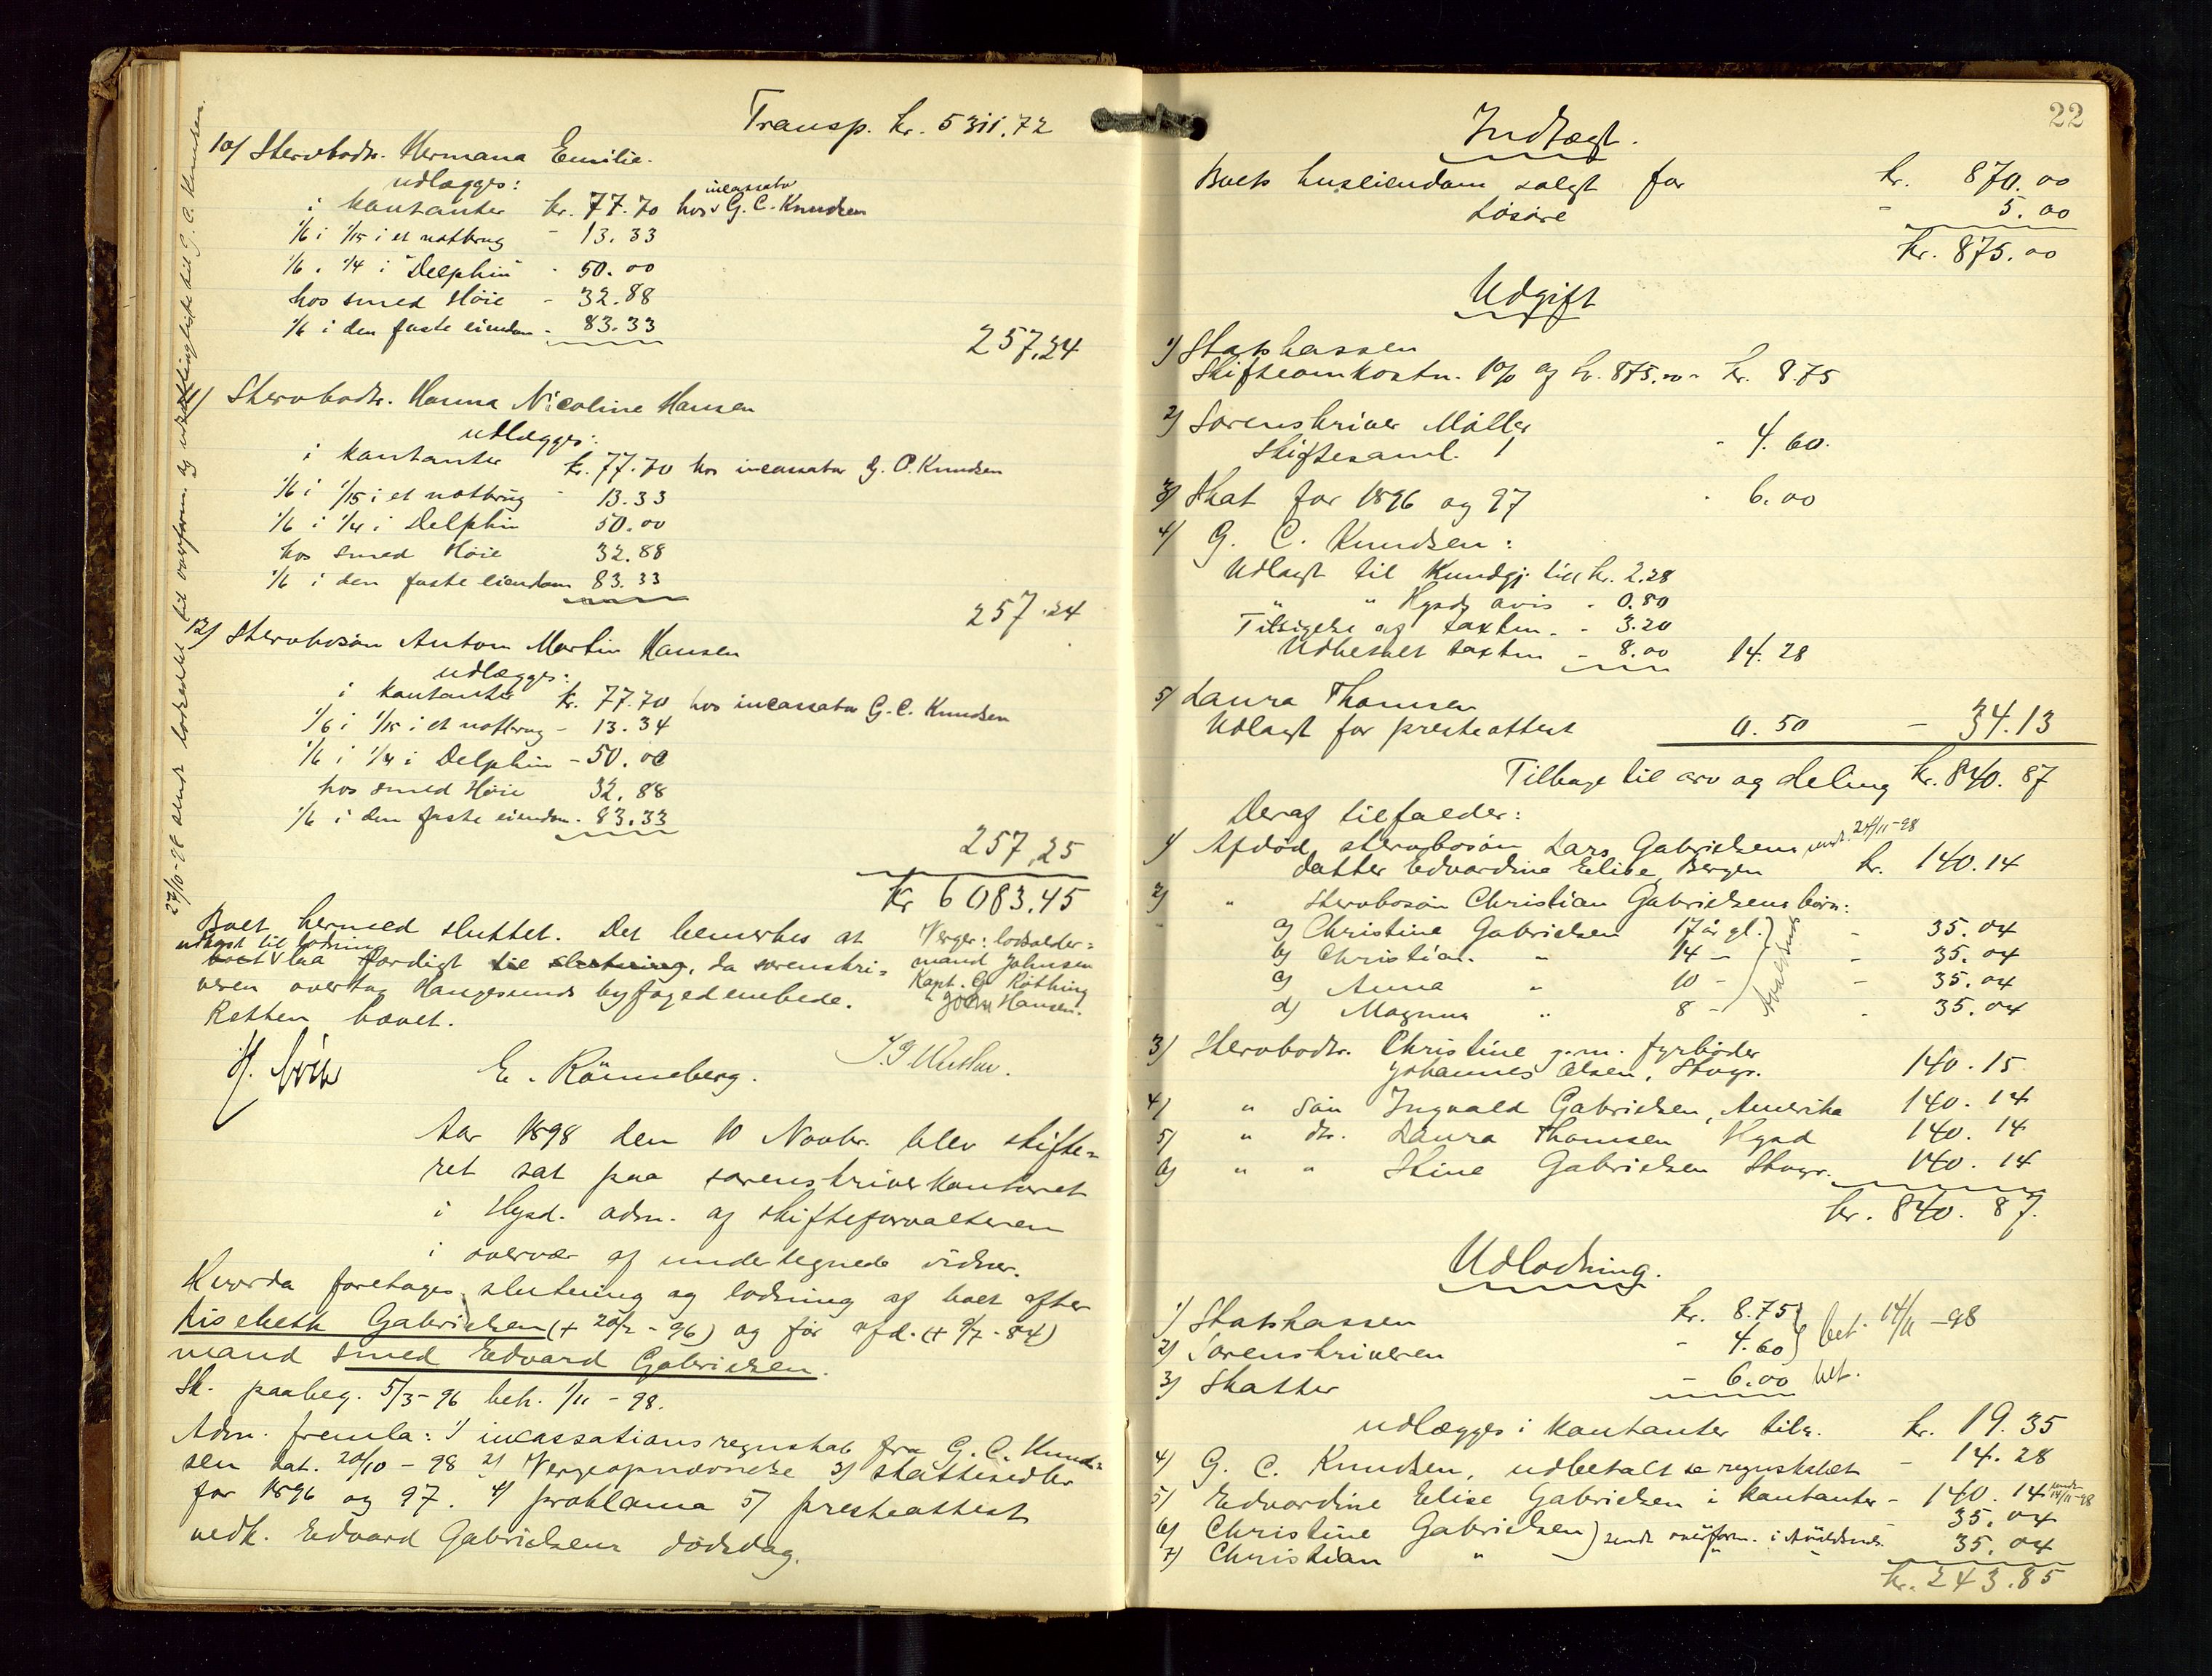 Transp. kr. 5311.72
10) Stervbodtr. Hermana Emilie.
udlægges:
i kontanter kr. 77.70 hos incassator G. C. Knudsen
1/6 i 1/15 i et notbrug - 13.33
1/6 i 1/4 i "Delphin" - 50.00
hos smed Höie - 32.88
1/6 i den faste eiendom - 83.33
257,24
11) Stervbodtr. Hanna Nicoline Hansen
udlægges:
i kontanter kr. 77.70 hos incassator G. C. Knudsen
1/6 i 1/15 i et notbrug - 13.33
1/6 i 1/4 i Delphin 50.00
hos smed Höie 32.88
1/6 i den faste eiendom 83.33
257.24
12) Stervbosön Anton Martin Hansen
udlægges:
i kontanter kr. 77.70 hos incassator G. C. Knudsen
1/6 i 1/15 i et notbrug - 13.34
1/6 i 1/4 i Delphin - 50.00
hos smed Höie 32.88
1/6 i den faste eiendom - 83.33
257,25
kr 6083.45
27/10-98 sendt lodseddel til overform. og til G. C. Knudsen.
Boet hermed sluttet. Det bemerkes at
udlagt til lodning
boet laa færdigt til slutning, da sorenskri=
veren overtog Haugesunds byfogedembede.
Retten hævet.
Verger: lodsolder=
mand Johnsen
Kapt. G Röthing
" John Hansen.
E. Rönneberg.
Aar 1898 den 10 Novbr. blev skifte=
ret sat paa sorenskriverkontoret
i Hgsd. adm. af skifteforvalteren
i overvær af undertegnede vidner.
Hvorda foretages slutning og lodning af boet efter
Lisebeth Gabrielsen (+ 20/2 - 96) og før afd. (+ 9/7 - 84)
mand smed Edvard Gabrielsen.
Sk. paabeg. 5/3-96 beh. 1/11 - 98.
Adm. fremla: 1) incassationsregnskab fra G. C. Knud=
sen dat. 20/10 - 98 2) Vergeopnævnelse 3) skattesedler
for 1896 og 97. 4) proklama 5) presteattest
vedk. Edvard Gabrielsens dödsdag.
22
Indtægt.
Boets huseiendom solgt for kr. 870.00
Lösöre - 5.00
kr. 875.00
Udgift
1) Statskassen
Skifteomkostn. 1% af kr. 875.00 - kr. 8.75
2) Sorenskriver Möller
Skiftesaml. 1 - 4.60.
3) Skat for 1896 og 97 - 6.00
4) G. C. Knudsen:
Udlagt til Kundgj. tid kr. 2.28
" " Hgsds avis - 0.80
Tilsigelse af taxtm. - 3.20
Udbetalt taxtm - 8.00 14.28
5) Laura Thomsen
Udlagt for presteattest 0.50 - 34.13
Tilbage til arv og deling kr. 840.87
Deraf tilfalder:
1) Afdöd stervbosön Lars Gabrielsens 24/11-98
datter Edvardine Elise, Bergen kr. 140.14
2) " Stervbosön Christian Gabrielsens börn:
a) Christine Gabrielsen 17 år gl. - 35.04
b) Christian " 14 - - 35.04
c) Anna " 10 - - 35.04
d) Magnus " 8 - - 35.04
Avaldsnes
3) Stervbodtr. Christine g.m. fyrböder
Johannes Olsen, Stvgr. 140.15
4) " sön Ingvald Gabrielsen, Amerika 140.14
5) " dtr. Laura Thomsen Hgsd 140.14
6) " " Stine Gabrielsen Stvgr. 140.14
kr. 840.87.
Udlodning.
1) Statskassen kr. 8.75 } bet. 14/11 - 98
2) Sorenskriveren - 4.60
3) Skatter - 6.00 bet.
udlægges i kontanter tils. kr. 19.35
4) G. C. Knudsen, udbetalt se regnskabet - 14.28
5) Edvardine Elise Gabrielsen i kontanter - 140.14 14/11-98
6) Christine Gabrielsen } sendt overform. i Avaldsnes 35.04
7) Christian " " - 35.04
kr. 243.85